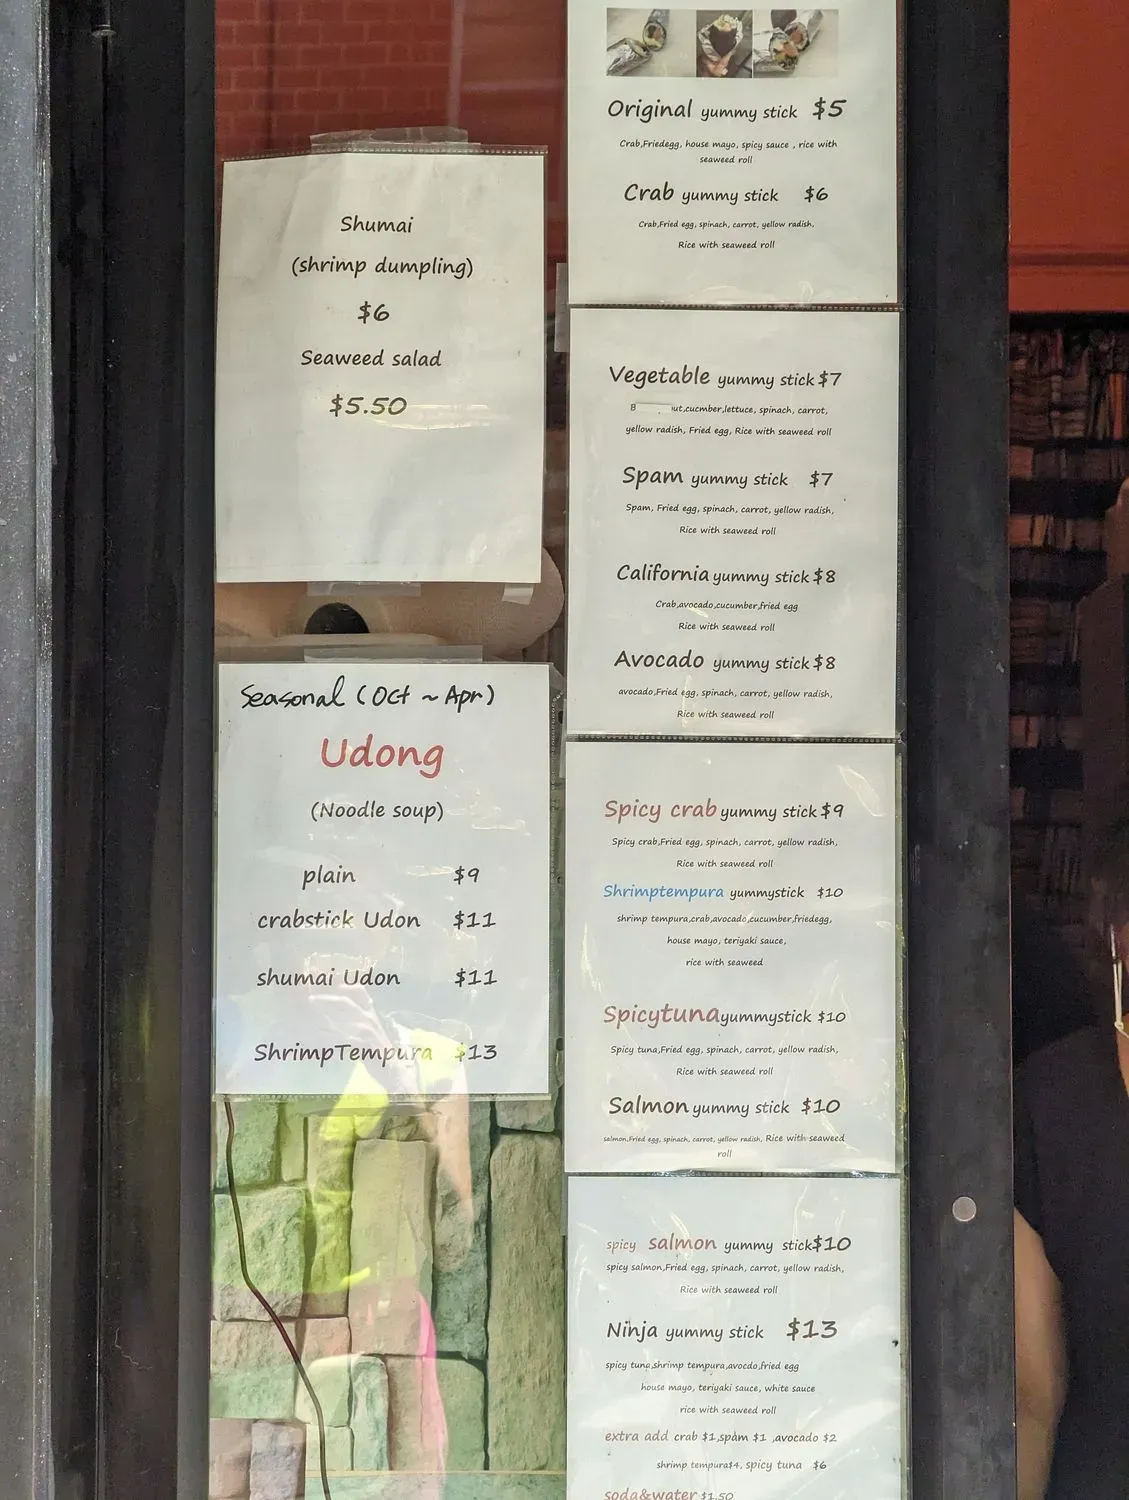 Shumai
(shrimp dumpling)
$6
Seaweed salad
$5.50
Seasonal (Oct ~ Apr)
Udong
(Noodle soup)
plain $9
crabstick Udon $11
shumai Udon $11
ShrimpTempura $13
Original yummy stick $5
Crab,Friedegg, house mayo, spicy sauce , rice with
seaweed roll
Crab yummy stick $6
Crab,Fried egg, spinach, carrot, yellow radish,
Rice with seaweed roll
Vegetable yummy stick $7
cucmber,lettuce, spinach, carrot,
yellow radish, Fried egg, Rice with seaweed roll
Spam yummy stick $7
Spam, Fried egg, spinach, carrot, yellow radish,
Rice with seaweed roll
California yummy stick $8
Crab,avocado,cucumber,fried egg
Rice with seaweed roll
Avocado yummy stick $8
avocado,Fried egg, spinach, carrot, yellow radish,
Rice with seaweed roll
Spicy crab yummy stick $9
Spicy crab,Fried egg, spinach, carrot, yellow radish,
Rice with seaweed roll
Shrimptempura yummystick $10
shrimp tempura,crab,avocado,cucumber,friedegg,
house mayo, teriyaki sauce,
rice with seaweed
Spicytunayummystick $10
Spicy tuna,Fried egg, spinach, carrot, yellow radish,
Rice with seaweed roll
Salmon yummy stick $10
salmon,Fried egg, spinach, carrot, yellow radish, Rice with seaweed
roll
spicy salmon yummy stick$10
spicy salmon,Fried egg, spinach, carrot, yellow radish,
Rice with seaweed roll
Ninja yummy stick $13
spicy tuna,shrimp tempura,avocdo,fried egg
house mayo, teriyaki sauce, white sauce
rice with seaweed roll
extra add crab $1,spam $1 ,avocado $2
shrimp tempura$4, spicy tuna $6
soda&water $1.50